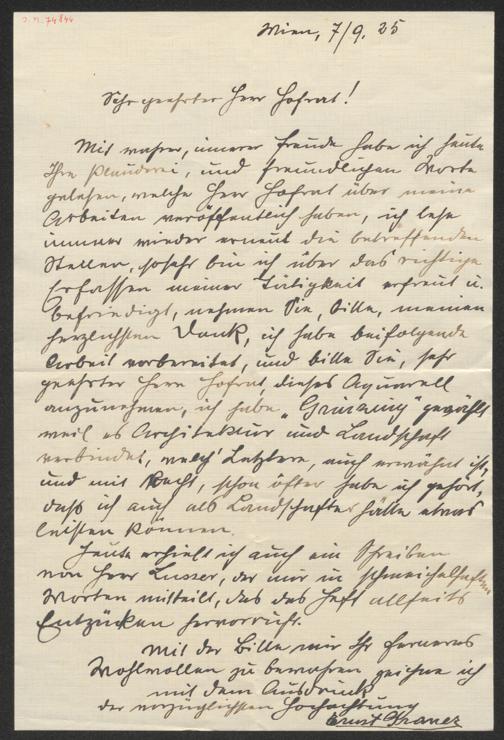 J. N. 74844
Wien, 7/9. 25
Sehr geehrter Herr Hofrat!
Mit wahrer, innerer Freude habe ich heute
Ihre Plauderei, und freundlichen Worte
gelesen, welche Herr Hofrat über meine
Arbeiten veröffentlich haben, ich lese
immer wieder erneut die betreffenden
Stellen, sosehr bin ich über das richtige
Erfassen meiner Tätigkeit erfreut u.
befriedigt, nehmen Sie, bitte, meinen
herzlichsten Dank, ich habe beifolgende
Arbeit vorbereitet, und bitte Sie, sehr
geehrter Herr Hofrat dieses Aquarell
anzunehmen, ich habe gewählt
weil es Architektur und Landschaft
verbindet, welch' Letztere, auch erwähnt ist,
und mit Recht, schon öfter habe ich gehört,
dass ich auch als Landschafter hätte etwas
leisten können.
Heute erhielt ich auch ein Schreiben
von Herr der mir in schmeichelhaften
Worten mitteilt, das das Heft allseits
Entzücken hervorruft.
Mit der Bitte mir Ihr ferneres
Wohlwollen zu bewahren zeichne ich
mit dem Ausdruck
der vorzüglichsten Hochachtung
Ernst Graner